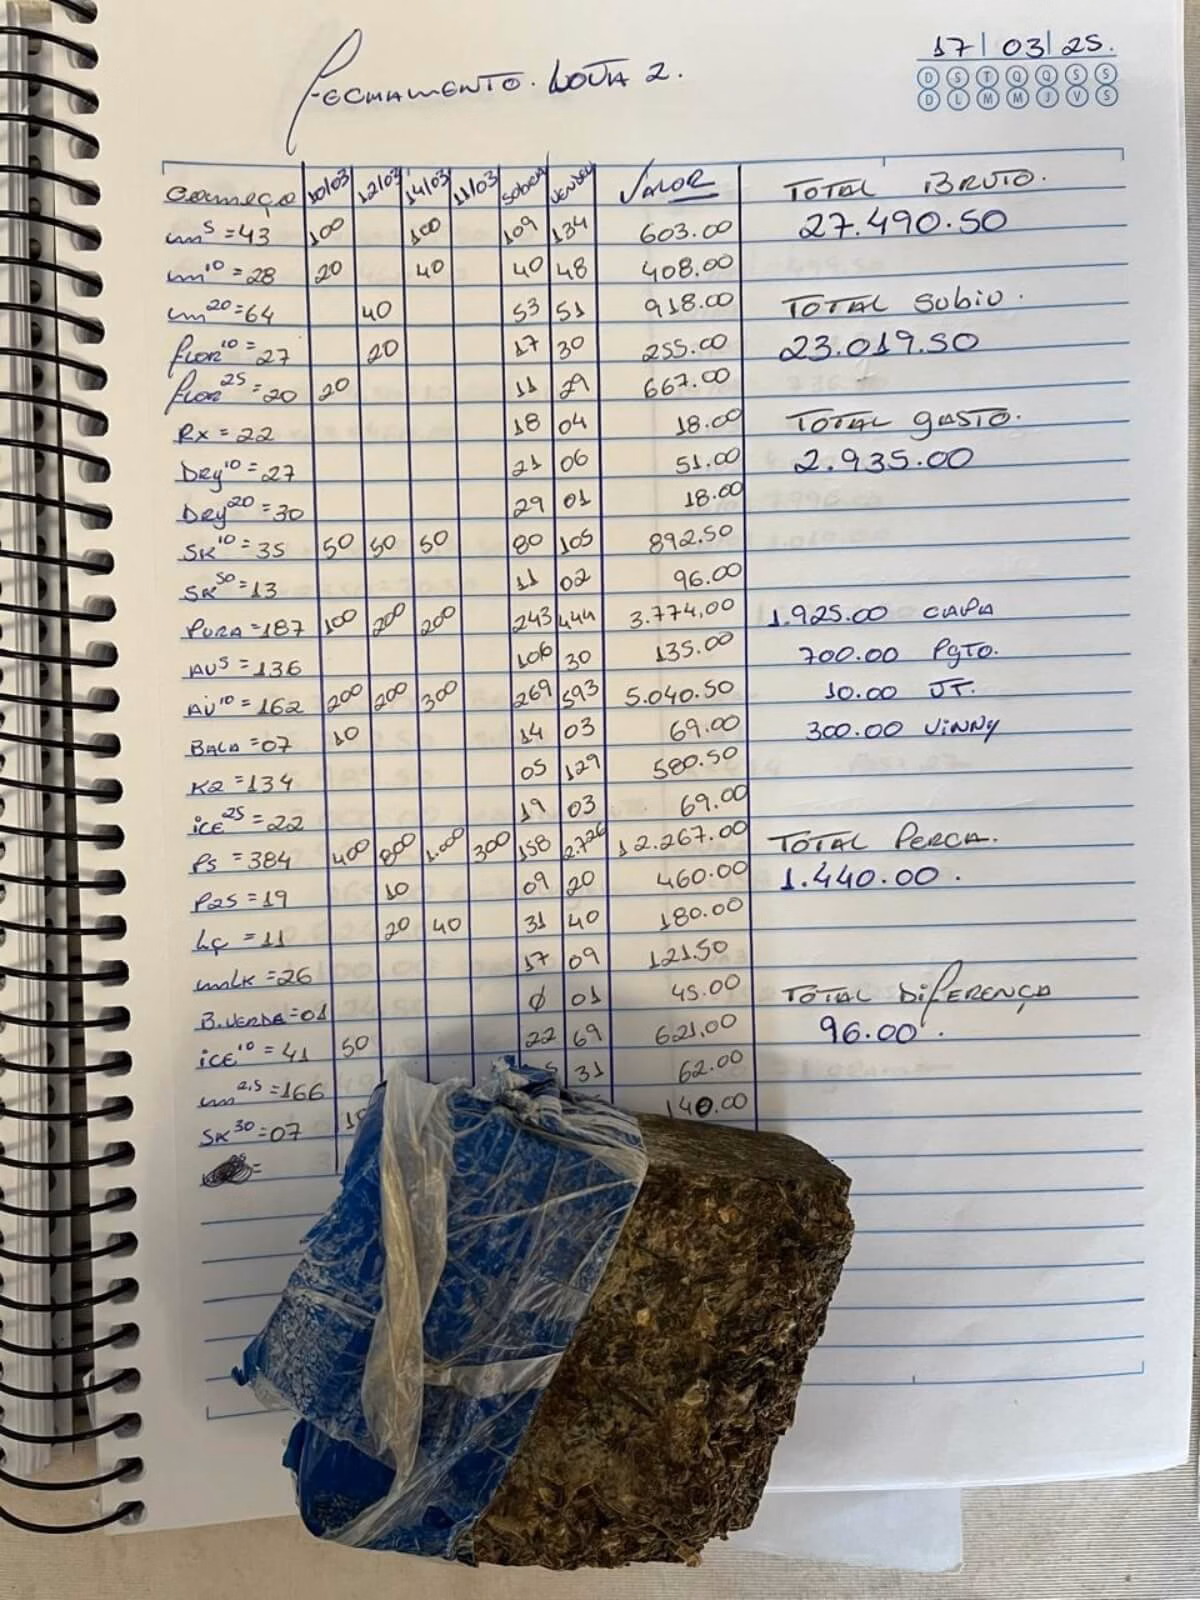 17/03/25.
D S T Q Q S S
D L M M J V S
FECHAMENTO. LOJA 2.
COMEÇO 10/03 12/03 14/03 11/03 SOBROU VENDEU VALOR
m5 = 43 100 100 109 134 603.00
m10 = 28 20 40 40 48 408.00
m20 = 64 40 53 51 918.00
FLOR10 = 27 20 17 30 255.00
FLOR25 = 20 20 11 29 667.00
RX = 22 18 04 18.00
DRY10 = 27 21 06 51.00
DRY20 = 30 29 01 18.00
SK10 = 35 50 50 50 80 105 892.50
SK50 = 13 11 02 96.00
PURA = 187 100 200 200 243 444 3.774.00
AU5 = 136 106 30 135.00
AU10 = 162 200 200 300 269 593 5.040.50
BALA = 07 10 14 03 69.00
K2 = 134 05 129 580.50
ICE25 = 22 19 03 69.00
P5 = 384 400 800 1.000 300 158 2.726 12.267.00
P25 = 19 10 09 20 460.00
LÇ = 11 20 40 31 40 180.00
mLK = 26 17 09 121.50
B.VERDE = 01 Ø 01 45.00
ICE10 = 41 50 22 69 621.00
m2,5 = 166 31 62.00
SK30 = 07 140.00
=
TOTAL BRUTO.
27.490.50
TOTAL SUBIU.
23.019.50
TOTAL GASTO.
2.935.00
1.925.00 CAPA
700.00 PGTO.
10.00 JT.
300.00 VINNY
TOTAL PERCA.
1.440.00.
TOTAL DIFERENÇA
96.00.